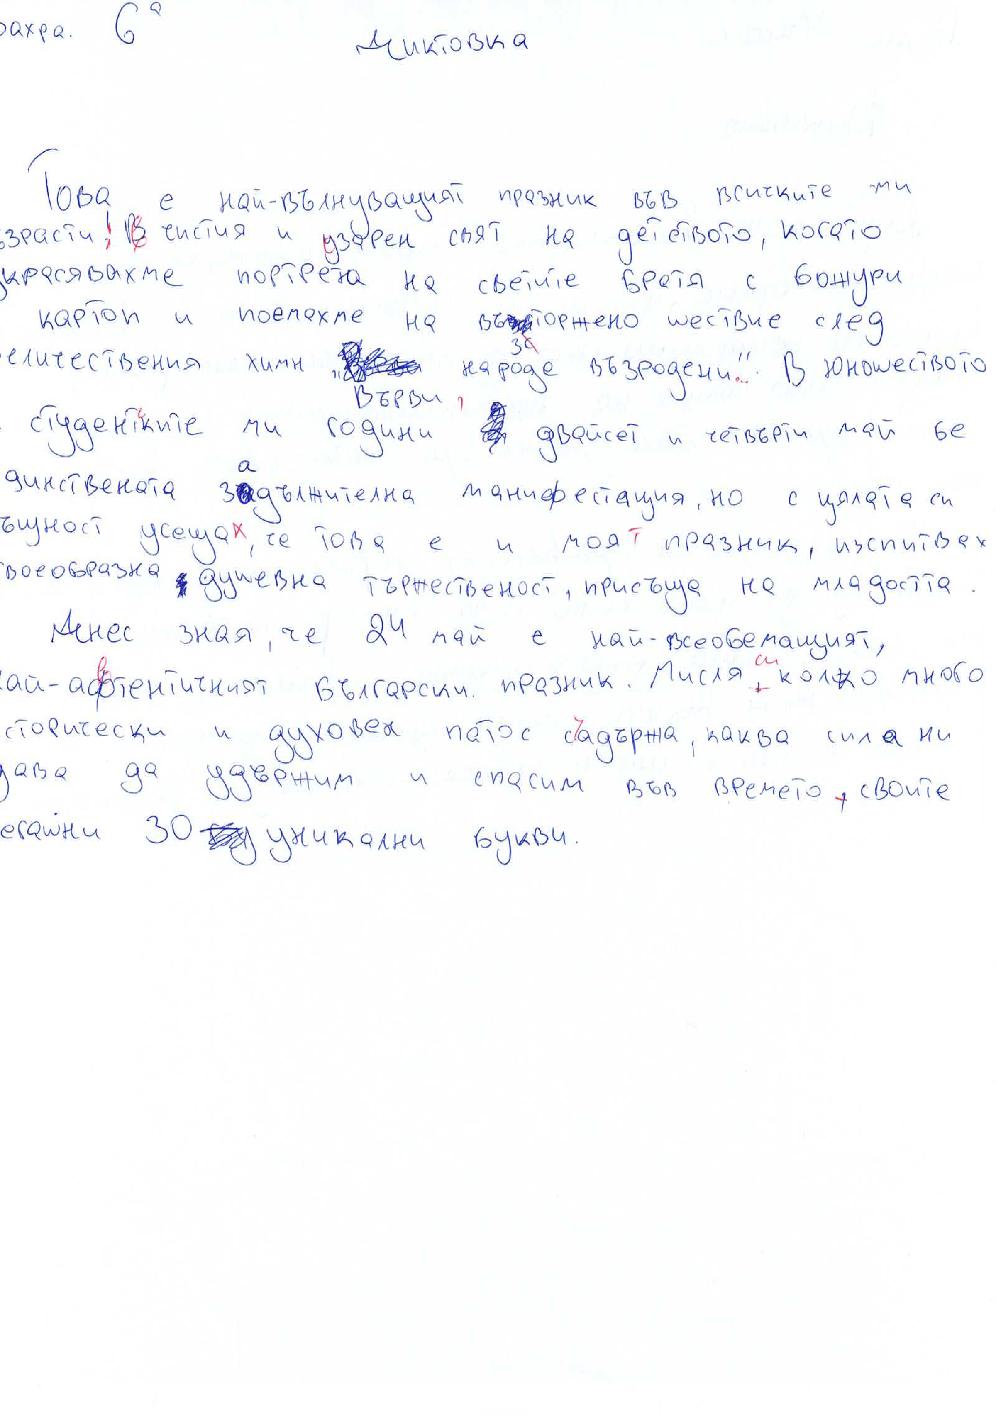 рахра. 6а
Диктовка
Това е най-вълнуващият празник във всичките ми
ъзрасти! В чистия и узарен свят на детството, когато
украсявахме портрета на светите братя с божури
картон и поемахме на възторжено шествие след
еличествения химн „Върви, народе възродени". В юношеството
студентските ми години двайсет и четвърти май бе
динствената задължителна манифестация, но с цялата си
ъщност усещах, че това е и моят празник, изпитвах
воеобразна душевна тържественост, присъща на младостта.
Днес зная, че 24 май е най-всеобемащият,
най-автентичният български празник. Мисля си колко много
сторически и духовен патос съдържа, каква сила ни
дава да удържим и спасим във времето, своите
егашни 30 уникални букви.